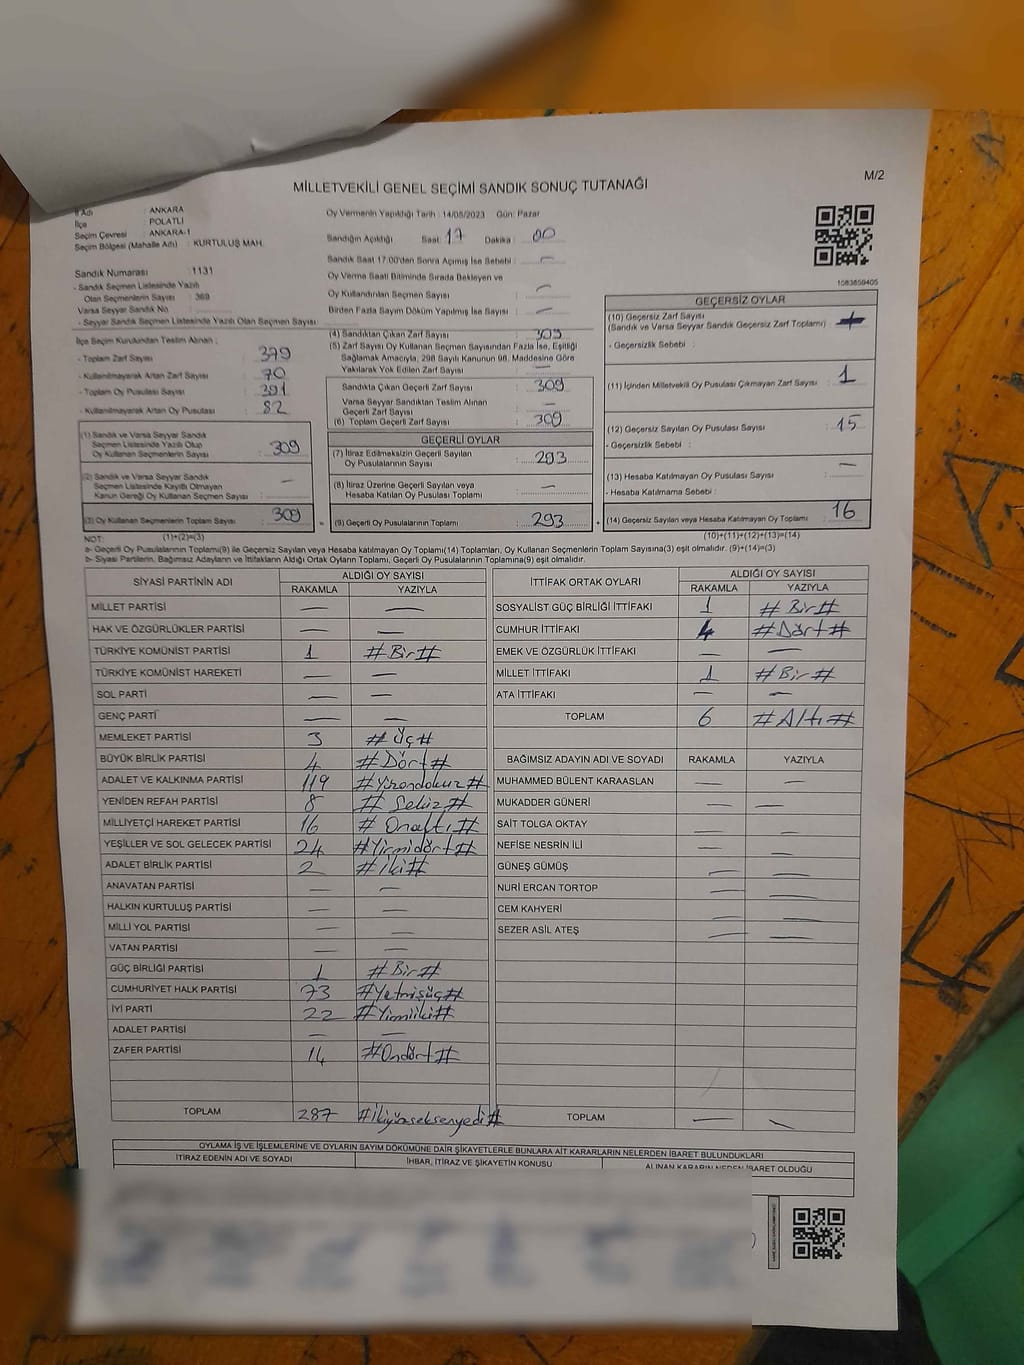 MİLLETVEKİLİ GENEL SEÇİMİ SANDIK SONUÇ TUTANAĞI
M/2
İl Adı : ANKARA
İlçe : POLATLI
Seçim Çevresi : ANKARA-1
Seçim Bölgesi (Mahalle Adı) : KURTULUŞ MAH.
Oy Vermenin Yapıldığı Tarih : 14/05/2023 Gün: Pazar
Sandığın Açıldığı Saat: 17 Dakika : 00
Sandık Saat 17:00'den Sonra Açılmış İse Sebebi : —
Oy Verme Saati Bitiminde Sırada Bekleyen ve
Oy Kullandırılan Seçmen Sayısı : —
Birden Fazla Sayım Döküm Yapılmış İse Sayısı : —
Sandık Numarası : 1131
- Sandık Seçmen Listesinde Yazılı
Olan Seçmenlerin Sayısı : 369
Varsa Seyyar Sandık No
- Seyyar Sandık Seçmen Listesinde Yazılı Olan Seçmen Sayısı :
İlçe Seçim Kurulundan Teslim Alınan ;
- Toplam Zarf Sayısı : 379
- Kullanılmayarak Artan Zarf Sayısı : 70
- Toplam Oy Pusulası Sayısı : 391
- Kullanılmayarak Artan Oy Pusulası : 82
(1) Sandık ve Varsa Seyyar Sandık
Seçmen Listesinde Yazılı Olup
Oy Kullanan Seçmenlerin Sayısı : 309
(2) Sandık ve Varsa Seyyar Sandık
Seçmen Listesinde Kayıtlı Olmayan
Kanun Gereği Oy Kullanan Seçmen Sayısı : —
(3) Oy Kullanan Seçmenlerin Toplam Sayısı : 309
(4) Sandıktan Çıkan Zarf Sayısı : 309
(5) Zarf Sayısı Oy Kullanan Seçmen Sayısından Fazla İse, Eşitliği
Sağlamak Amacıyla, 298 Sayılı Kanunun 98. Maddesine Göre
Yakılarak Yok Edilen Zarf Sayısı : —
Sandıkta Çıkan Geçerli Zarf Sayısı : 309
Varsa Seyyar Sandıktan Teslim Alınan
Geçerli Zarf Sayısı : —
(6) Toplam Geçerli Zarf Sayısı : 309
GEÇERLİ OYLAR
(7) İtiraz Edilmeksizin Geçerli Sayılan
Oy Pusulalarının Sayısı : 293
(8) İtiraz Üzerine Geçerli Sayılan veya
Hesaba Katılan Oy Pusulası Toplamı : —
(9) Geçerli Oy Pusulalarının Toplamı : 293
1083859405
GEÇERSİZ OYLAR
(10) Geçersiz Zarf Sayısı
(Sandık ve Varsa Seyyar Sandık Geçersiz Zarf Toplamı) :
- Geçersizlik Sebebi :
(11) İçinden Milletvekili Oy Pusulası Çıkmayan Zarf Sayısı : 1
(12) Geçersiz Sayılan Oy Pusulası Sayısı : 15
- Geçersizlik Sebebi :
(13) Hesaba Katılmayan Oy Pusulası Sayısı : —
- Hesaba Katılmama Sebebi :
(14) Geçersiz Sayılan veya Hesaba Katılmayan Oy Toplamı : 16
NOT: (1)+(2)=(3)
(10)+(11)+(12)+(13)=(14)
a- Geçerli Oy Pusulalarının Toplamı(9) ile Geçersiz Sayılan veya Hesaba katılmayan Oy Toplamı(14) Toplamları, Oy Kullanan Seçmenlerin Toplam Sayısına(3) eşit olmalıdır. (9)+(14)=(3)
b- Siyasi Partilerin, Bağımsız Adayların ve İttifakların Aldığı Ortak Oyların Toplamı, Geçerli Oy Pusulalarının Toplamına(9) eşit olmalıdır.
SİYASİ PARTİNİN ADI ALDIĞI OY SAYISI
RAKAMLA YAZIYLA
MİLLET PARTİSİ — —
HAK VE ÖZGÜRLÜKLER PARTİSİ — —
TÜRKİYE KOMÜNİST PARTİSİ 1 #Bir#
TÜRKİYE KOMÜNİST HAREKETİ — —
SOL PARTİ — —
GENÇ PARTİ — —
MEMLEKET PARTİSİ 3 #Üç#
BÜYÜK BİRLİK PARTİSİ 4 #Dört#
ADALET VE KALKINMA PARTİSİ 119 #Yüzondokuz#
YENİDEN REFAH PARTİSİ 8 #Sekiz#
MİLLİYETÇİ HAREKET PARTİSİ 16 #Onaltı#
YEŞİLLER VE SOL GELECEK PARTİSİ 24 #Yirmidört#
ADALET BİRLİK PARTİSİ 2 #İki#
ANAVATAN PARTİSİ — —
HALKIN KURTULUŞ PARTİSİ — —
MİLLİ YOL PARTİSİ — —
VATAN PARTİSİ — —
GÜÇ BİRLİĞİ PARTİSİ 1 #Bir#
CUMHURİYET HALK PARTİSİ 73 #Yetmişüç#
İYİ PARTİ 22 #Yirmiiki#
ADALET PARTİSİ — —
ZAFER PARTİSİ 14 #Ondört#
TOPLAM 287 #İkiyüzseksenyedi#
İTTİFAK ORTAK OYLARI ALDIĞI OY SAYISI
RAKAMLA YAZIYLA
SOSYALİST GÜÇ BİRLİĞİ İTTİFAKI 1 #Bir#
CUMHUR İTTİFAKI 4 #Dört#
EMEK VE ÖZGÜRLÜK İTTİFAKI — —
MİLLET İTTİFAKI 1 #Bir#
ATA İTTİFAKI — —
TOPLAM 6 #Altı#
BAĞIMSIZ ADAYIN ADI VE SOYADI RAKAMLA YAZIYLA
MUHAMMED BÜLENT KARAASLAN — —
MUKADDER GÜNERİ — —
SAİT TOLGA OKTAY — —
NEFİSE NESRİN İLİ — —
GÜNEŞ GÜMÜŞ — —
NURİ ERCAN TORTOP — —
CEM KAHYERİ — —
SEZER ASİL ATEŞ — —
TOPLAM — —
OYLAMA İŞ VE İŞLEMLERİNE VE OYLARIN SAYIM DÖKÜMÜNE DAİR ŞİKAYETLERLE BUNLARA AİT KARARLARIN NELERDEN İBARET BULUNDUKLARI
İTİRAZ EDENİN ADI VE SOYADI İHBAR, İTİRAZ VE ŞİKAYETİN KONUSU ALINAN KARARIN NEDEN İBARET OLDUĞU